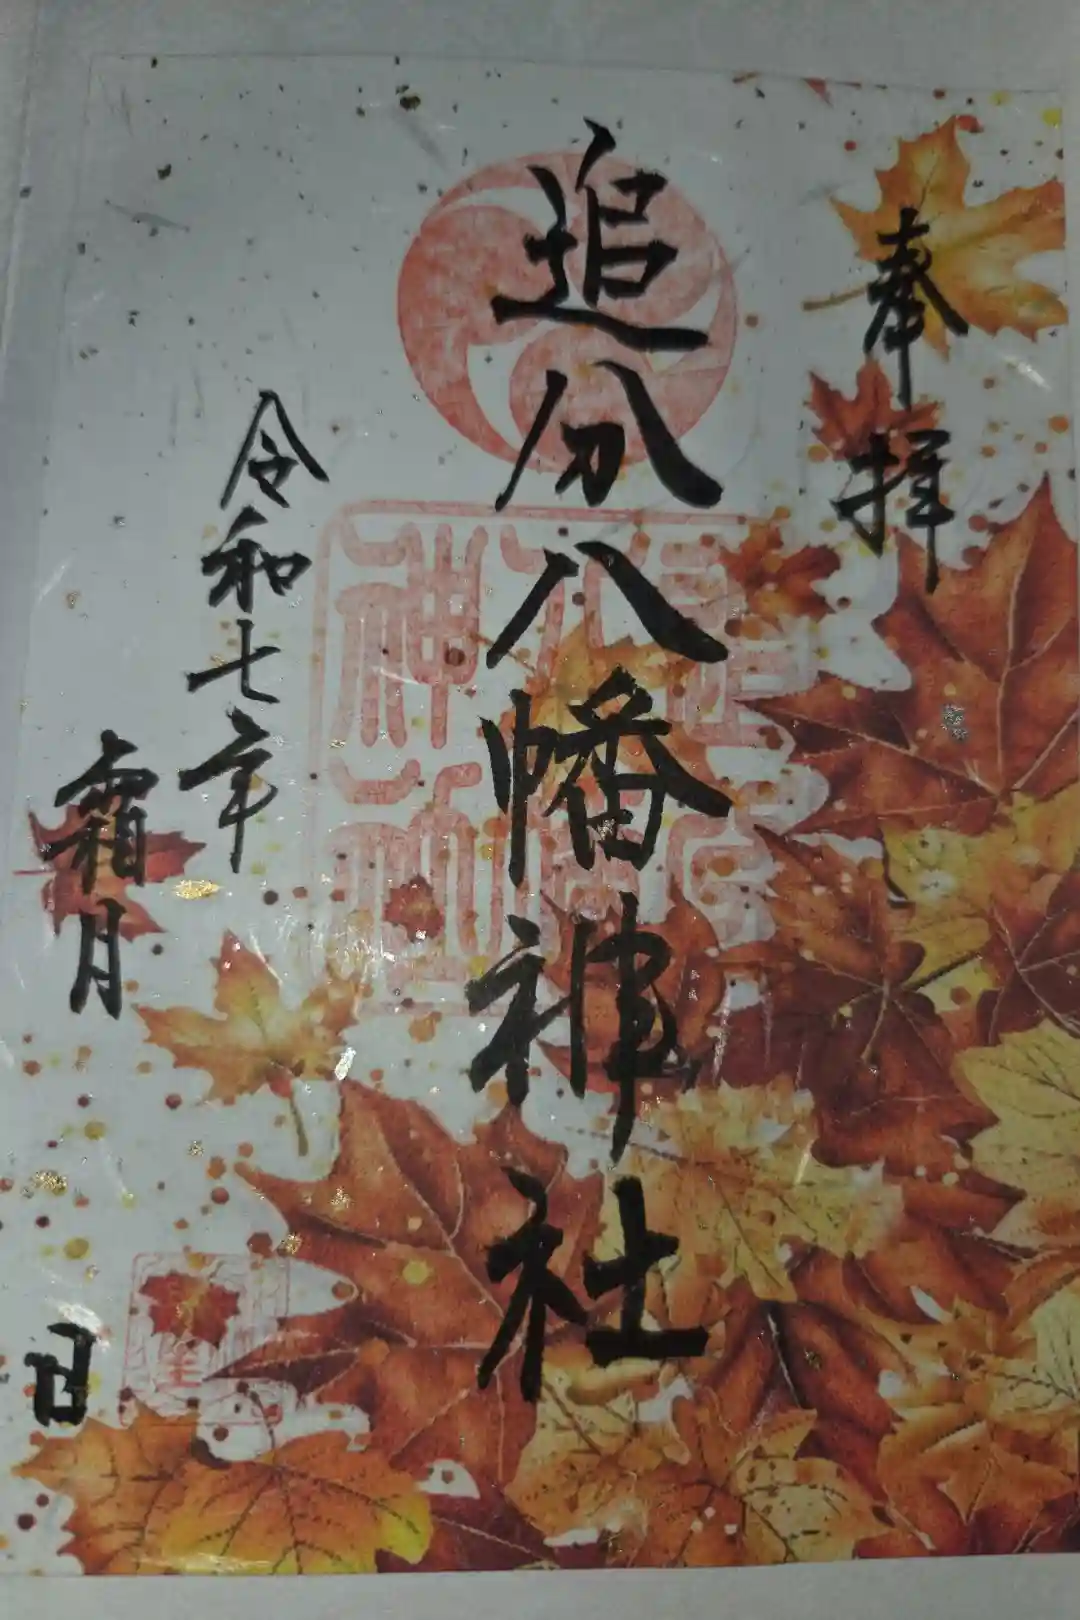 奉拝
追分八幡神社
令和七年
霜月
日